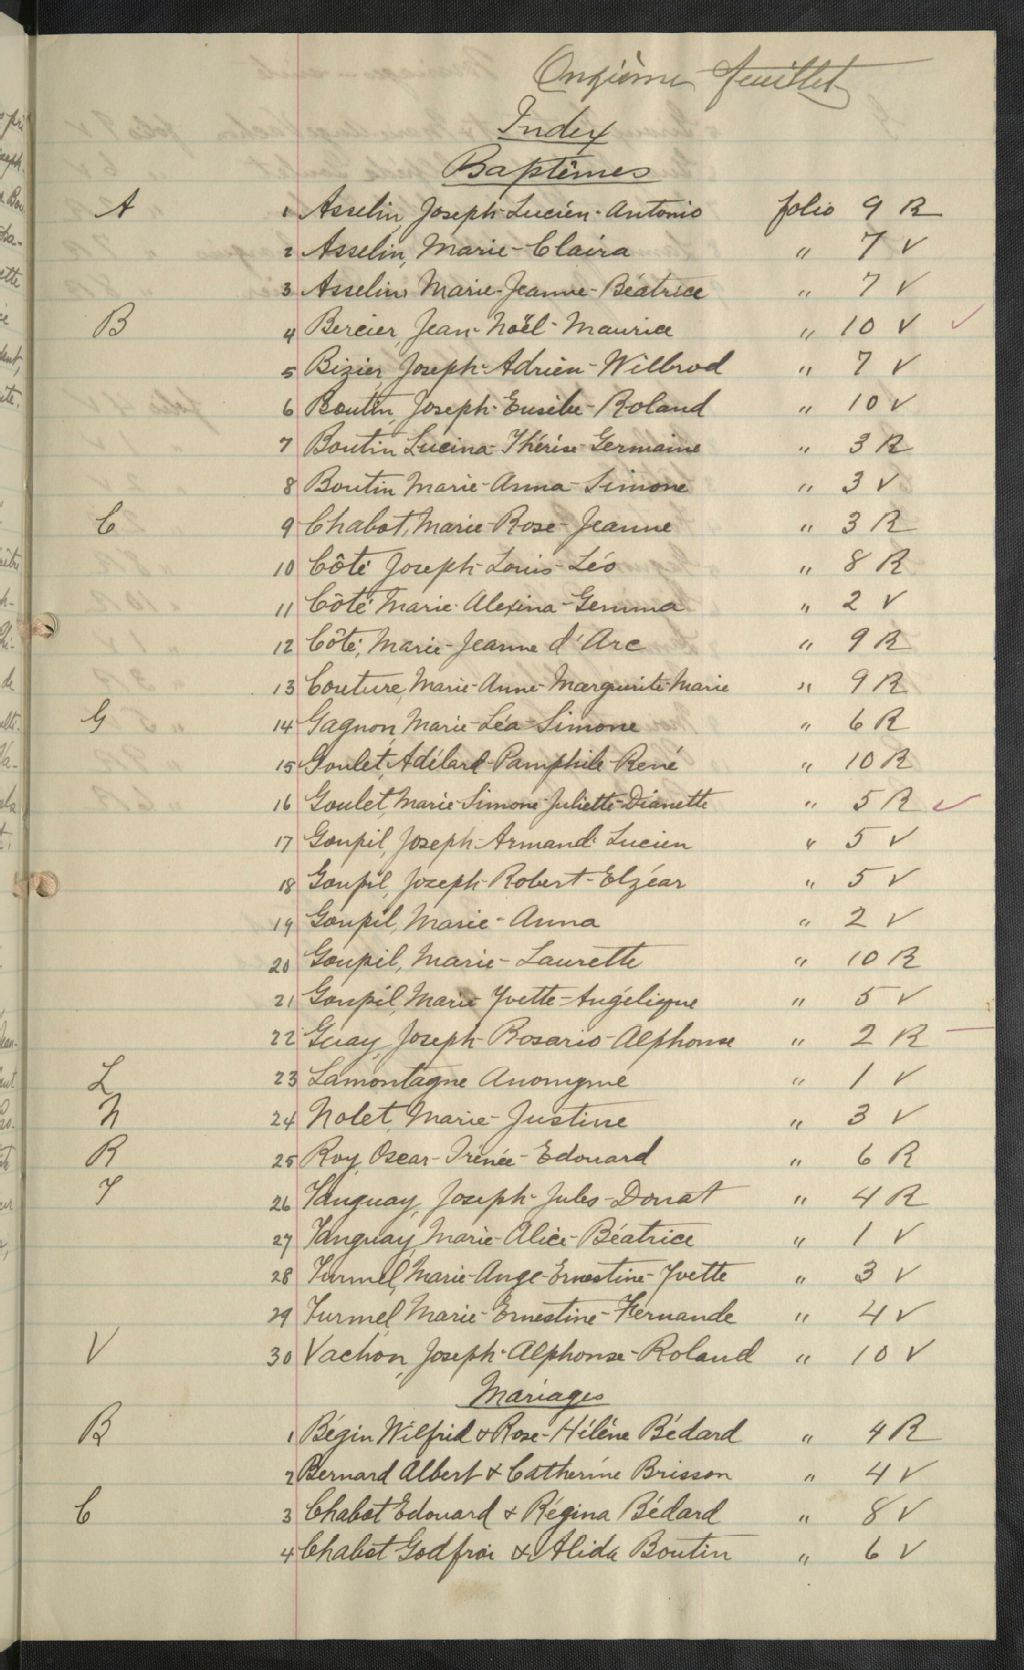 Onzième feuillet
Index
Baptêmes
A 1 Asselin, Joseph-Lucien-Antonio folio 9 R
2 Asselin, Marie-Claira " 7 V
3 Asselin, Marie-Jeanne-Béatrice " 7 V
B 4 Bercier, Jean-Noël-Maurice " 10 V
5 Bizier, Joseph-Adrien-Wilbrod " 7 V
6 Boutin, Joseph-Eusèbe-Roland " 10 V
7 Boutin Lucina-Thérèse-Germaine " 3 R
8 Boutin, Marie-Anna-Simone " 3 V
C 9 Chabot, Marie-Rose-Jeanne " 3 R
10 Côté Joseph-Louis-Léo " 8 R
11 Côté Marie-Alexina-Gemma " 2 V
12 Côté, Marie-Jeanne d'Arc " 9 R
13 Couture, Marie-Anne-Marguerite-Marie " 9 R
G 14 Gagnon, Marie-Léa-Simone " 6 R
15 Goulet, Adélard-Pamphile-René " 10 R
16 Goulet, Marie-Simone-Juliette-Dianette " 5 R
17 Goupil, Joseph-Armand-Lucien " 5 V
18 Goupil, Joseph-Robert-Elzéar " 5 V
19 Goupil, Marie-Anna " 2 V
20 Goupil, Marie-Laurette " 10 R
21 Goupil, Marie-Yvette-Angélique " 5 V
22 Guay, Joseph-Rosario-Alphonse " 2 R
L 23 Lamontagne Anonyme " 1 V
N 24 Nolet, Marie-Justine " 3 V
R 25 Roy, Oscar-Irénée-Edouard " 6 R
T 26 Tanguay, Joseph-Jules-Donat " 4 R
27 Tanguay, Marie-Alice-Béatrice " 1 V
28 Turmel, Marie-Ange-Ernestine-Yvette " 3 V
29 Turmel, Marie-Ernestine-Fernande " 4 V
V 30 Vachon, Joseph-Alphonse-Roland " 10 V
Mariages
B 1 Bégin Wilfrid & Rose-Hélène Bédard " 4 R
2 Bernard Albert & Catherine Brisson " 4 V
C 3 Chabot Edouard & Régina Bédard " 8 V
4 Chabot Godfroi & Alida Boutin " 6 V